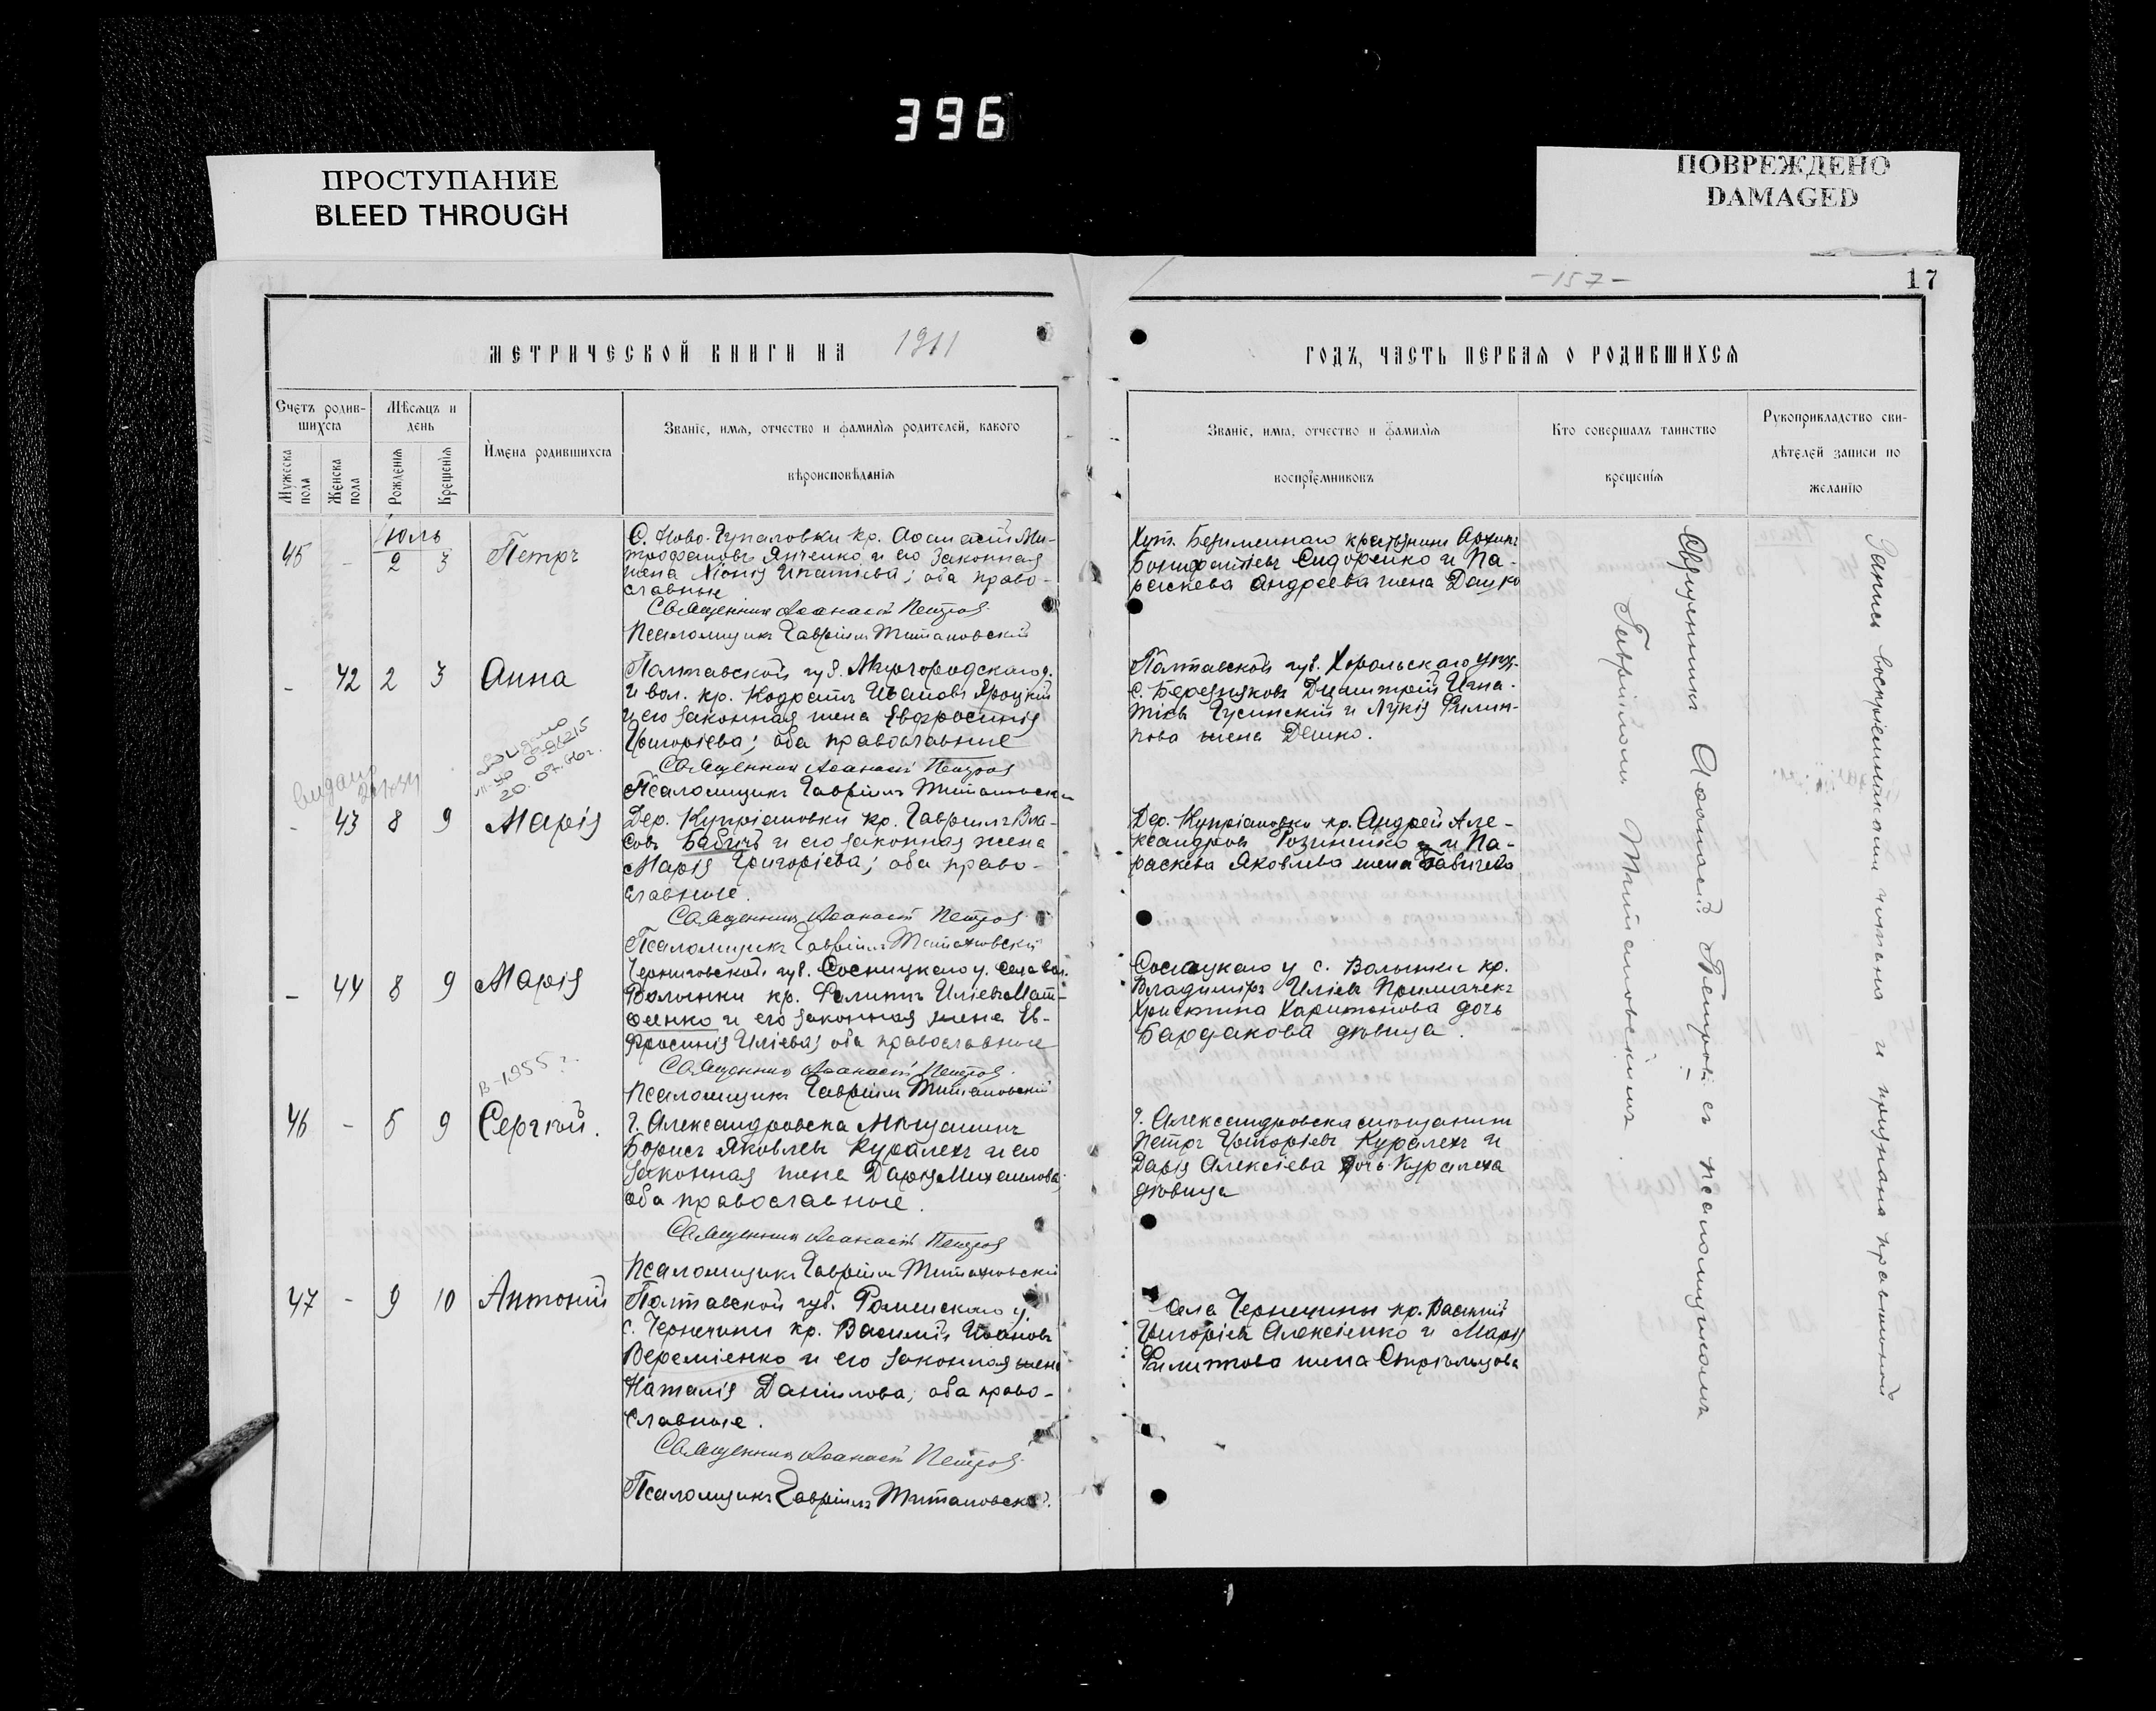 396
ПРОСТУПАНИЕ
BLEED THROUGH
ПОВРЕЖДЕНО
DAMAGED
-157-
17
МЕТРИЧЕСКОЙ КНИГИ НА 1911
ГОДЪ, ЧАСТЬ ПЕРВАЯ О РОДИВШИХСЯ
Счетъ родив-
шихся
Мужеска пола
Женска пола
Мѣсяцъ и
день
Рожденія
Крещенія
Имена родившихся
Званіе, имя, отчество и фамилія родителей, какого
вѣроисповѣданія
Званіе, имя, отчество и фамилія
воспріемниковъ
Кто совершалъ таинство
крещенія
Рукоприкладство сви-
дѣтелей записи по
желанію
Іюль
45 - 2 3 Петръ
С. Ново-Гупаловки кр. Аѳанасій Ми-
трофановъ Янченко и его законная
жена Игнатіева; оба право-
славные
Священникъ Аѳанасій Петровъ
Псаломщикъ Гавріилъ Титановскій
Хут. Безименнаго крестьянинъ Архипъ
Бонифатіевъ Сидоренко и Па-
раскева Андреева жена Дашко
- 42 2 3 Анна
Полтавской губ. Миргородскаго у.
и вол. кр. Кодратъ Ивановъ Яроцкій
и его законная жена Евфросинія
Григоріева; оба православные
Священникъ Аѳанасій Петровъ
Псаломщикъ Гавріилъ Титановскій
Полтавской губ. Хорольскаго уѣз.
с. Березняковъ Димитрій Игна-
тіевъ Гусинскій и Лукія Филип-
пова жена Дешко.
видано
20.07.
- 43 8 9 Марія
Дер. Купріяновки кр. Гавріилъ Вла-
совъ Бабичъ и его законная жена
Марія Григоріева; оба право-
славные.
Священникъ Аѳанасій Петровъ
Псаломщикъ Гавріилъ Титановскій
Дер. Купріяновки кр. Андрей Але-
ксандровъ Розиненко и Па-
раскева Яковлева жена Бабичева
- 44 8 9 Марія
Черниговской губ. Сосницкаго у. села вол.
Волынки кр. Филиппъ Иліевъ Мат-
ѳеенко и его законная жена Ев-
фросинія Иліева; оба православные
Священникъ Аѳанасій Петровъ
Псаломщикъ Гавріилъ Титановскій
Сосницкаго у с. Волынки кр.
Владиміръ Иліевъ Примачекъ
Христина Харитонова дочь
Бардакова дѣвица.
В-1955 г.
46 - 5 9 Сергѣй.
г. Александровска мѣщанинъ
Борисъ Яковлевъ Куралехъ и его
законная жена Дарія Михаилова;
оба православные.
Священникъ Аѳанасій Петровъ
Псаломщикъ Гавріилъ Титановскій
г. Александровска мѣщанинъ
Петръ Григоріевъ Куралехъ и
Дарія Алексіева дочь Куралеха
дѣвица
47 - 9 10 Антоній
Полтавской губ. Роменскаго у.
с. Чернечини кр. Василій Ивановъ
Вереміенко и его законная жена
Наталія Даніилова; оба право-
славные.
Священникъ Аѳанасій Петровъ
Псаломщикъ Гавріилъ Титановскій.
Села Чернечины кр. Василій
Григоріевъ Алексіенко и Марія
Филиппова жена Стрѣльцова
Священникъ Аѳанасій Петровъ съ псаломщикомъ
Гавріиломъ Титановскимъ.
Запись воспріемниками читана и признана правильной